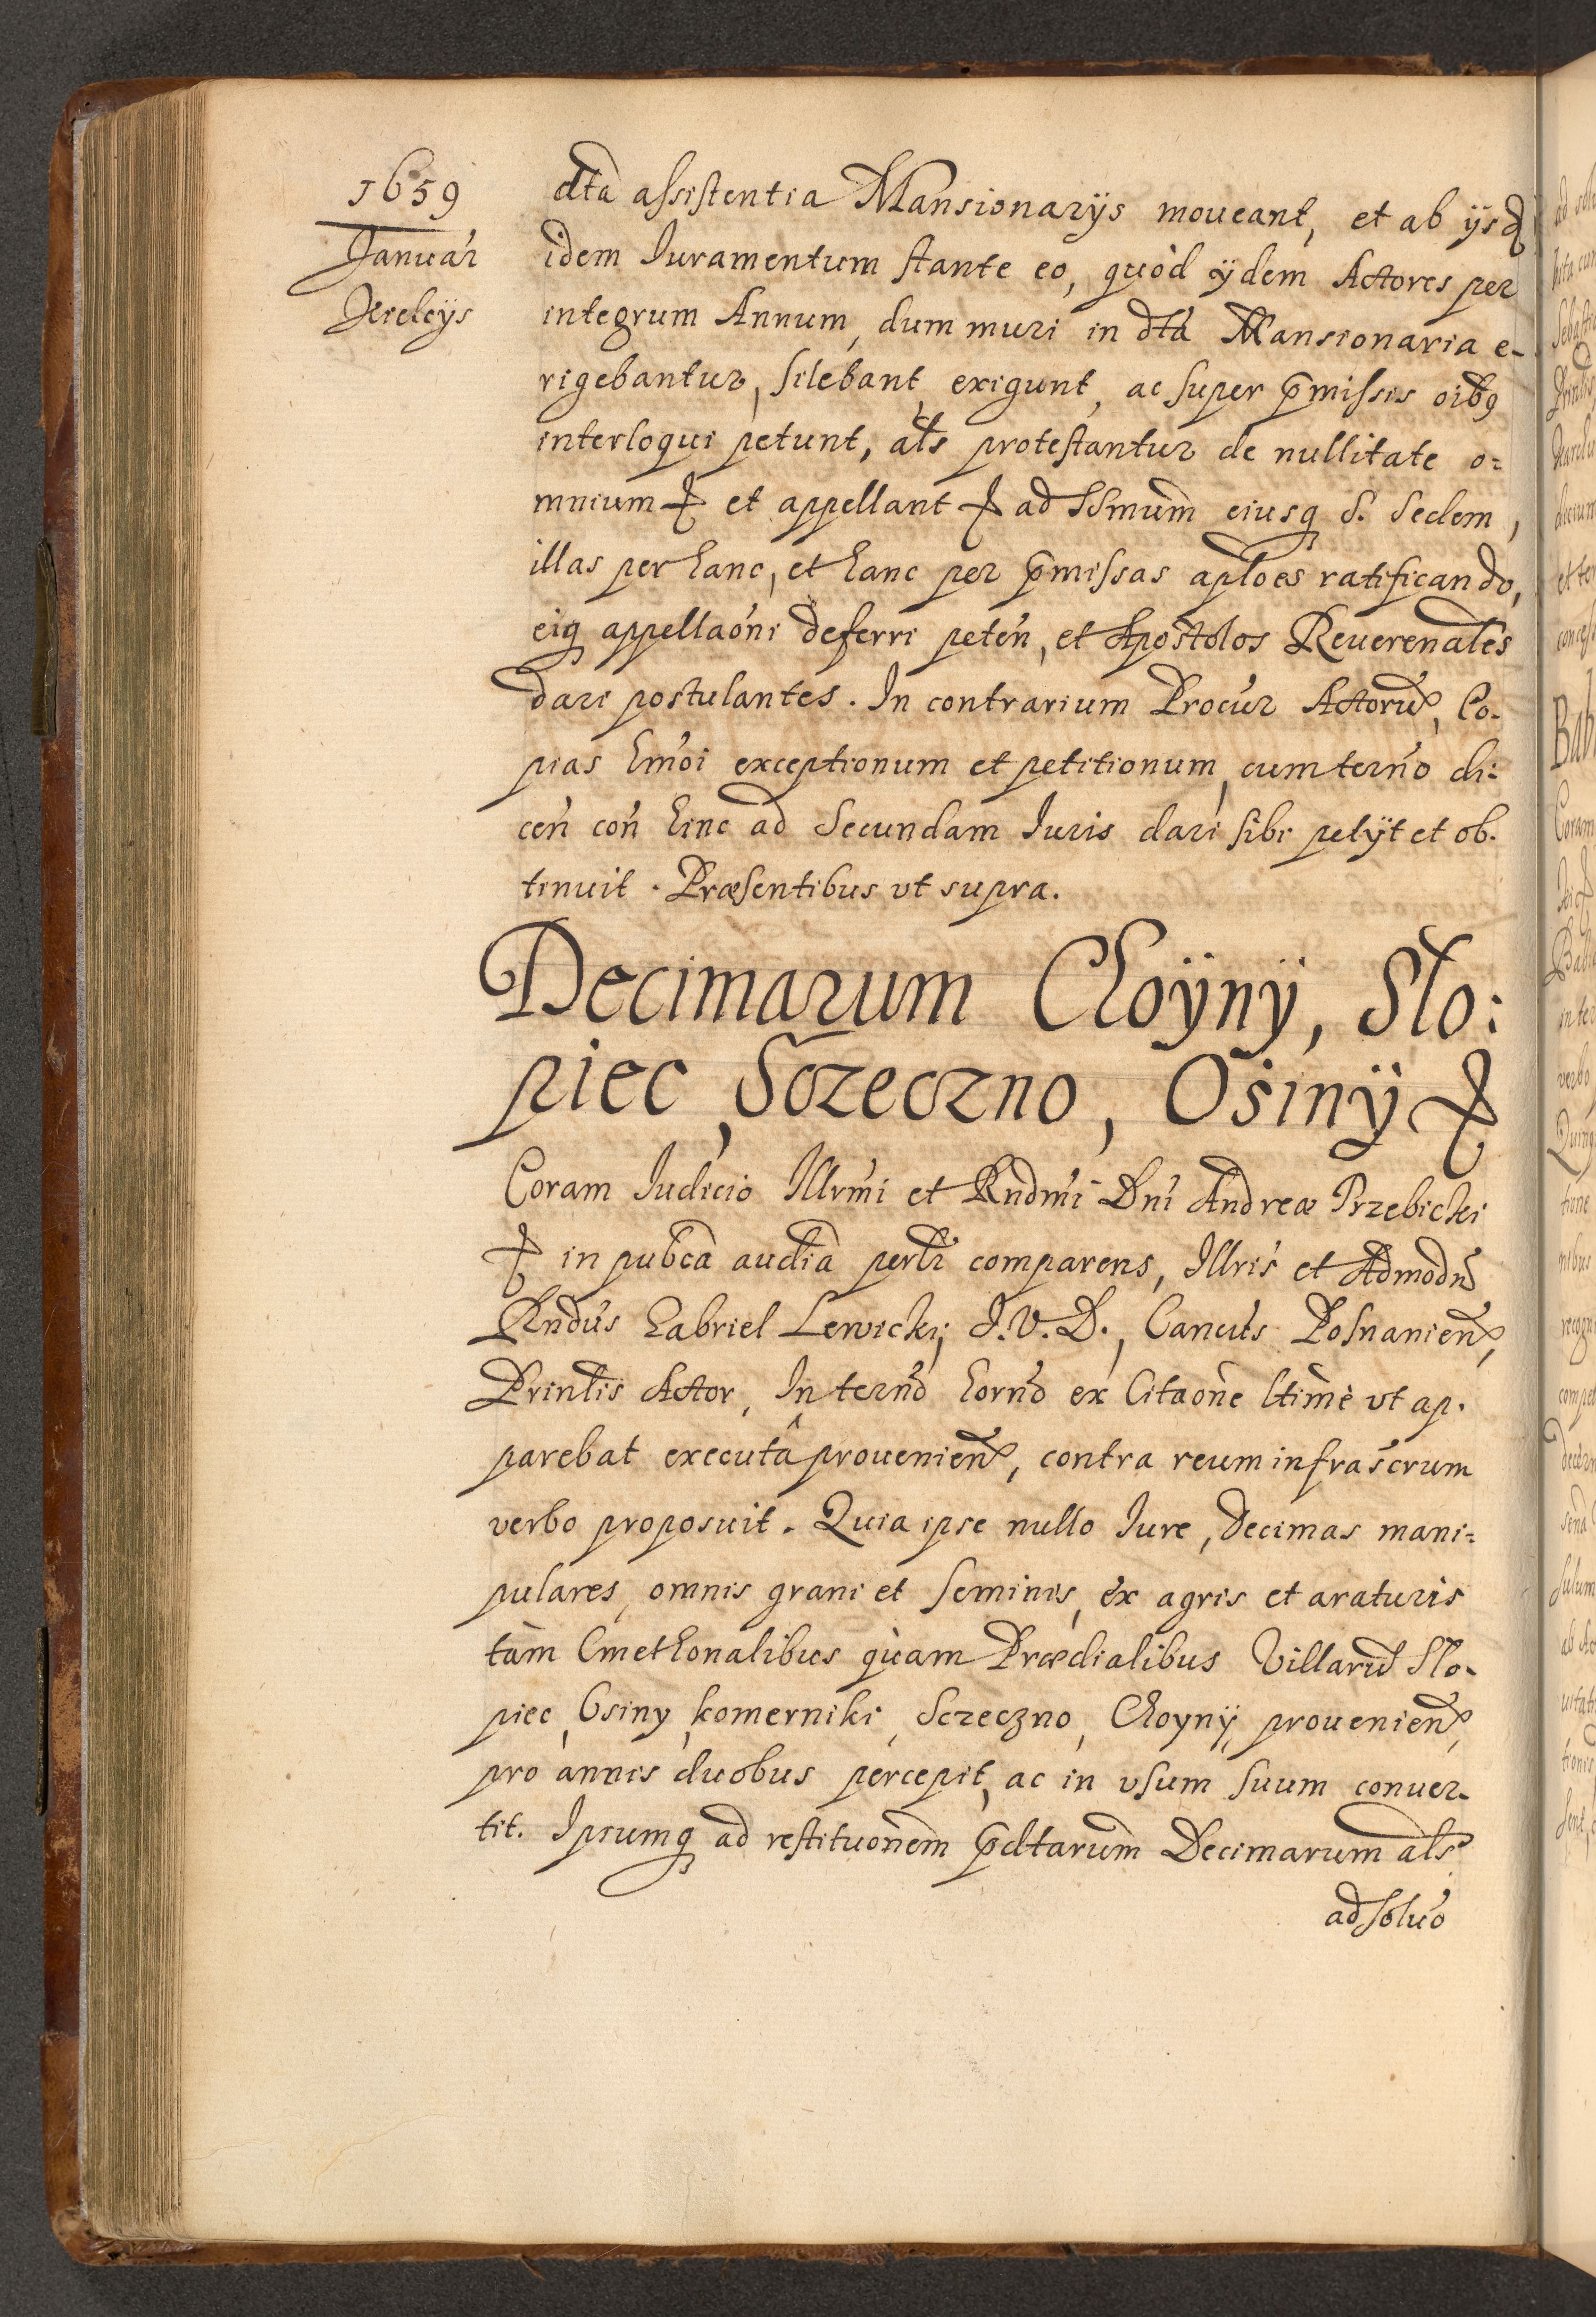 1659
Januar
Jereleÿs
dta assistentia Mansionarÿs moueant, et ab ÿsd
idem Iuramentum stante eo, quòd ÿdem Actores per
integrum Annum, dum muri in dta Mansionaria e-
rigebantur, silebant, exigunt, ac super pmissis oibq
interloqui petunt, als protestantur de nullitate o=
mnium & et appellant & ad SSmum eiusq S. Sedem,
illas per hanc, et hanc per pmissas aploes ratificando,
eiq appellaoni deferri peten, et Apostolos Reuerenales
dari postulantes. In contrarium Procur Actorum, Co-
pias hmoi exceptionum et petitionum, cum terno di:
cen con hinc ad Secundam Iuris dari sibi petÿt et ob.
tinuit. Præsentibus vt supra.
Decimarum Choÿnÿ, Slo:
piec, Sczeczno, Osinÿ &
Coram Iudicio Illrmi et Rndmi Dni Andreæ Trzebicki
& in pubca audia perlr comparens, Illris et Admodu
Rndus Gabriel Lewicki, I.V.D., Cancus Posnanien,
Prinlis Actor, In terno horno ex Citaone ltimè vt ap.
parebat executâ prouenien, contra reum infrascrum
verbo proposuit. Quia ipse nullo Iure, Decimas mani=
pulares, omnis grani et seminis, ex agris et araturis
tàm Cmethonalibus quàm Prædialibus Villaru Slo-
piec, Osiny, komerniki, Sczeczno, Choynÿ, prouenien,
pro annis duobus percepit, ac in vsum suum conuer-
tit. Ipsumq ad restituonem pdtarum Decimarum als
ad soluo